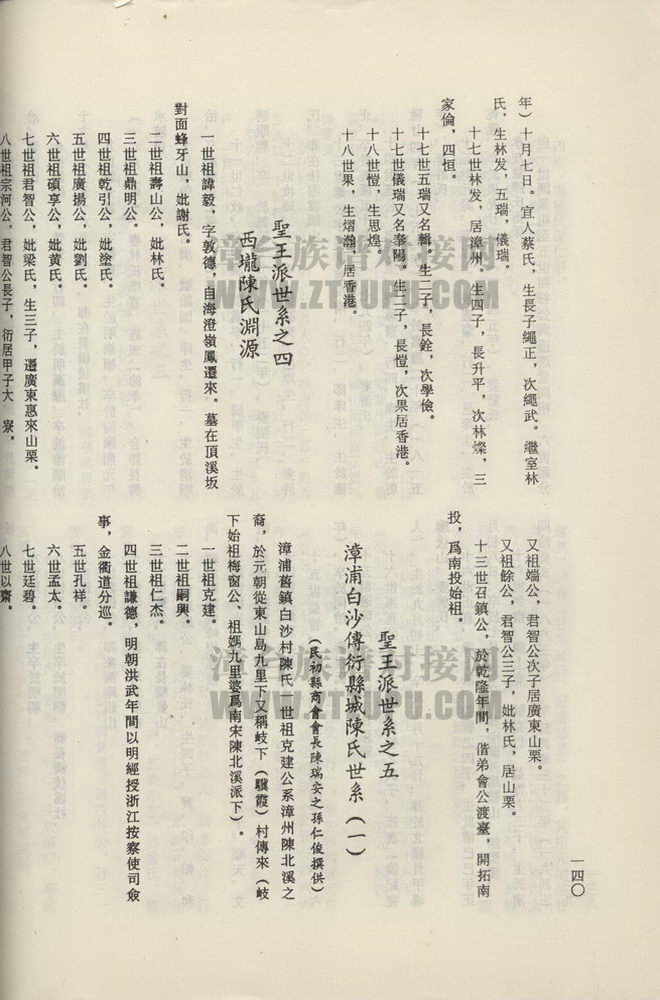 年）十月七日。宜人蔡氏，生長子繩正，次繩武。繼室林
氏，生林发，五瑞，儀瑞。
十七世林发，居漳州。生四子，長升平，次林燦，三
家倫，四恒。
十七世五瑞又名輯。生二子，長銓，次學儉。
十七世儀瑞又名奉陽。生二子，長愷，次果居香港。
十八世愷，生思煌。
十八世果，生熠瀚，居香港。
聖王派世系之四
西壠陳氏淵源
一世祖諱毅，字敦德，自海澄嶺鳳遷來。墓在頂溪坂
對面蜂牙山，妣謝氏。
二世祖壽山公，妣林氏。
三世祖鼎明公。
四世祖乾引公，妣塗氏。
五世祖廣揚公，妣劉氏。
六世祖碩享公，妣黄氏。
七世祖君智公，妣梁氏，生三子，遷廣東惠來山栗。
八世祖宗河公，君智公長子，衍居甲子大 寮。
又祖端公，君智公次子居廣東山栗。
又祖餘公，君智公三子，妣林氏，居山栗。
十三世召鎮公，於乾隆年間，偕弟會公渡臺，開拓南
投，爲南投始祖。
聖王派世系之五
漳浦白沙傳衍縣城陳氏世系（一）
（民初縣商會會長陳瑞安之孫仁俊撰供）
漳浦舊鎮白沙村陳氏一世祖克建公系漳州陳北溪之
裔，於元朝從東山島九里下又稱岐下（驥霞）村傳來（岐
下始祖梅窗公、祖媽九里婆爲南宋陳北溪派下）。
一世祖克建。
二世祖嗣興。
三世祖仁杰。
四世祖謙德，明朝洪武年間以明經授浙江按察使司僉
事，金衢道分巡。
五世孔祥。
六世孟太。
七世廷碧。
八世以齋。
一四〇
漳台族谱对接网
WWW.ZTZUPU.COM
漳台族谱对接网
WWW.ZTZUPU.COM